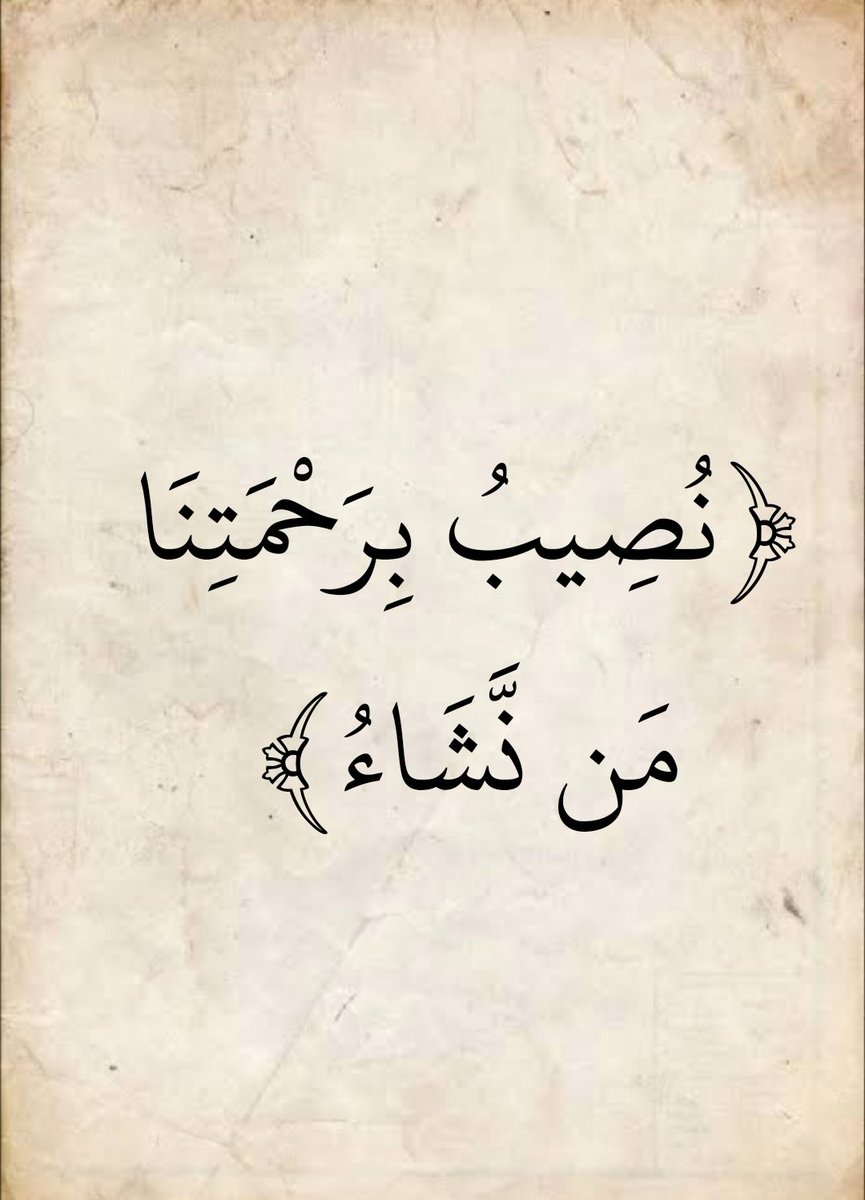 ﴿نُصِيبُ بِرَحْمَتِنَا
مَن نَّشَاءُ﴾